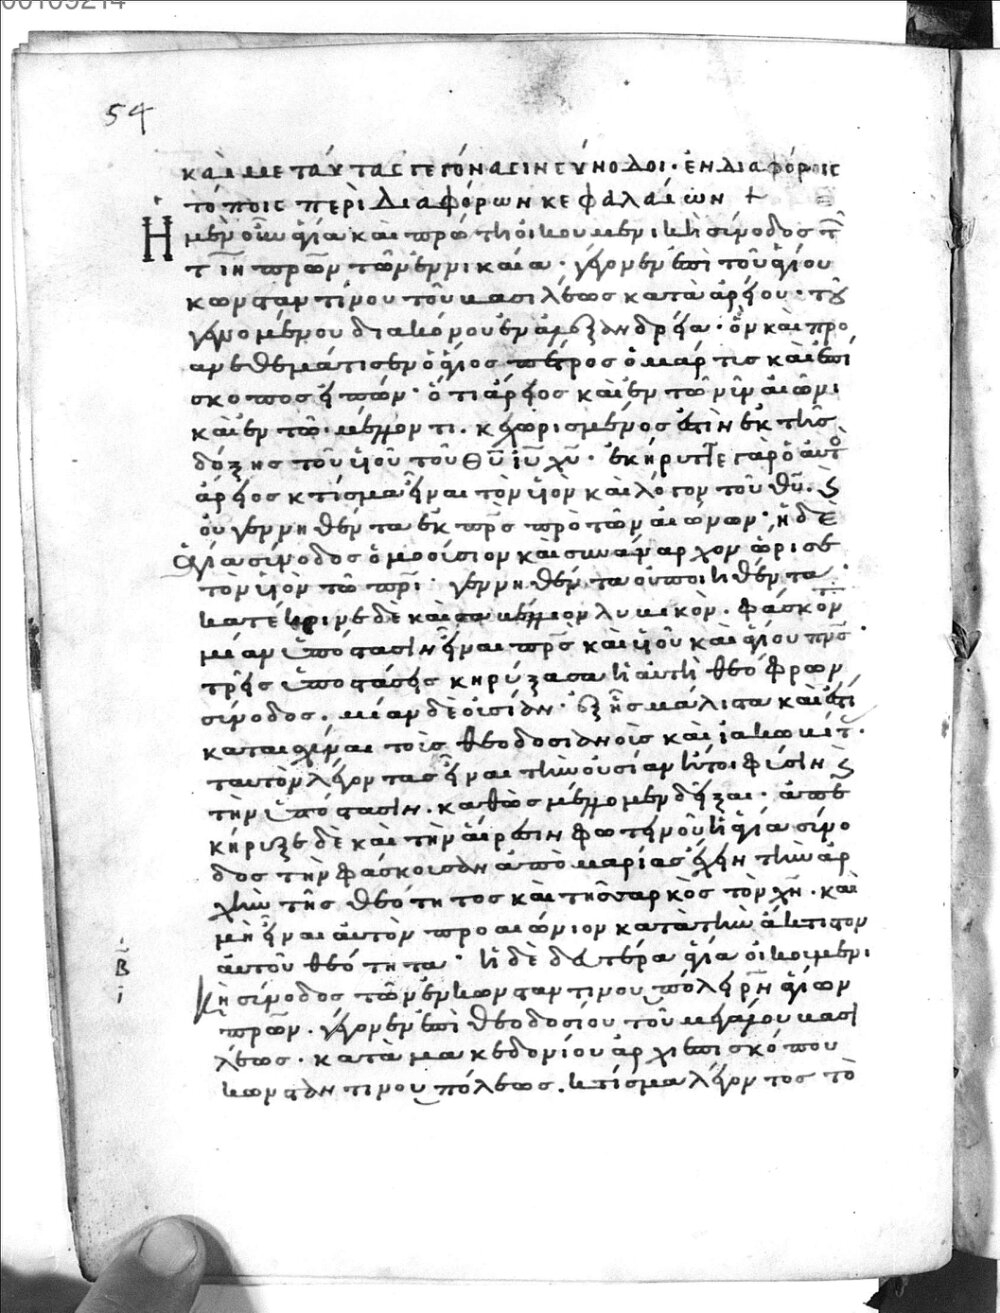 54
καὶ μετὰ ταύτας γεγόνασιν σύνοδοι· ἐν διαφόροις
τόποις περὶ διαφόρων κεφαλαίων +
Ἡ μὲν οὖν ἁγία καὶ πρώτη οἰκουμενικὴ σύνοδος τῶν
τιη πρῶν τῶν ἐν νικαία· γέγονεν ἐπὶ τοῦ ἁγίου
κωνσταντίνου τοῦ βασιλέως κατὰ ἀρείου· τοῦ
γενομένου διακόνου ἐν ἀλεξανδρεία· ὃν καὶ προ
ανεθεμάτισεν ὁ ἅγιος πέτρος ὁ μάρτις καὶ ἐπί
σκοπος εἰπών· ὅτι ἄρειος καὶ ἐν τῶ νῦν αἰῶνι
καὶ ἐν τῶ μέλλοντι. κεχωρισμένος ἐστὶν ἐκ τῆς
δόξης τοῦ υἱοῦ τοῦ θυ ιυ χυ· ἐκήρυττε γὰρ ὁ αὐτὸ
ἄρειος κτίσμα εἶναι τὸν υἱὸν καὶ λόγον τοῦ θυ. ϛ
οὐ γεννηθέντα ἐκ πρς πρὸ τῶν αἰώνων· ἡ δὲ
ἁγία σύνοδος ὁμοούσιον καὶ συνάναρχον ὥρισε
τὸν υἱὸν τῶ πρι· γεννηθέντα οὐ ποιηθέντα·
κατέκρινε δὲ καὶ σαβέλλιον λυβικὸν. φάσκοντ
μίαν ὑπόστασιν εἶναι πρς καὶ υἱοῦ καὶ ἁγίου πνς·
τρεῖς ὑποστάσεις κηρύξασα ἡ αὐτὴ θεόφρων
σύνοδος. μίαν δὲ οὐσίαν· ἐξ ἧς μάλιστα καὶ ἔστι
καταισχύναι τοῖς θεοδοσιανοῖς καὶ ἰακωβίτ·
ταυτὸν λέγοντας εἶναι τὴν οὐσίαν ἤτοι φύσιν ϛ
τὴν ὑπόστασιν. καθὼς μέλλομεν δεῖξαι· ἀπε
κήρυξε δὲ καὶ τὴν αἵρεσιν φωτεινοῦ ἡ ἁγία σύνο
δος τὴν φάσκουσαν ἀπὸ μαρίας ἔχειν τὴν ἀρ
χὴν τῆς θεότητος καὶ τῆς σαρκὸς τὸν χν· καὶ
μὴ εἶναι αὐτὸν προαιώνιον κατὰ τὴν ἄκτιστον
αὐτοῦ θεότητα· ἡ δὲ δευτέρα ἁγία οἰκουμενι
κὴ σύνοδος τῶν ἐν κωνσταντινουπόλει ρν ἁγίων
πρων· γέγονεν ἐπὶ θεοδοσίου τοῦ μεγάλου βασι
λέως· κατὰ μακεδονίου ἀρχιεπισκόπου
κωνσταντινουπόλεως. κτίσμα λέγοντος τὸ